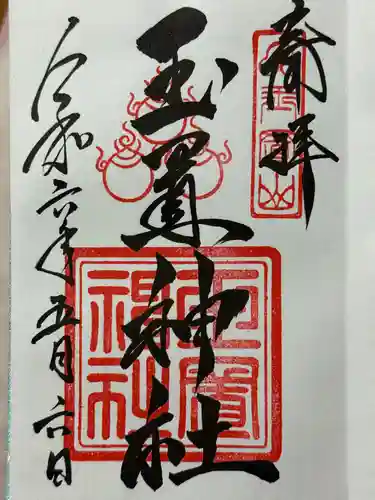 奉拝
玉置神社
玉置
神社
令和六年五月六日